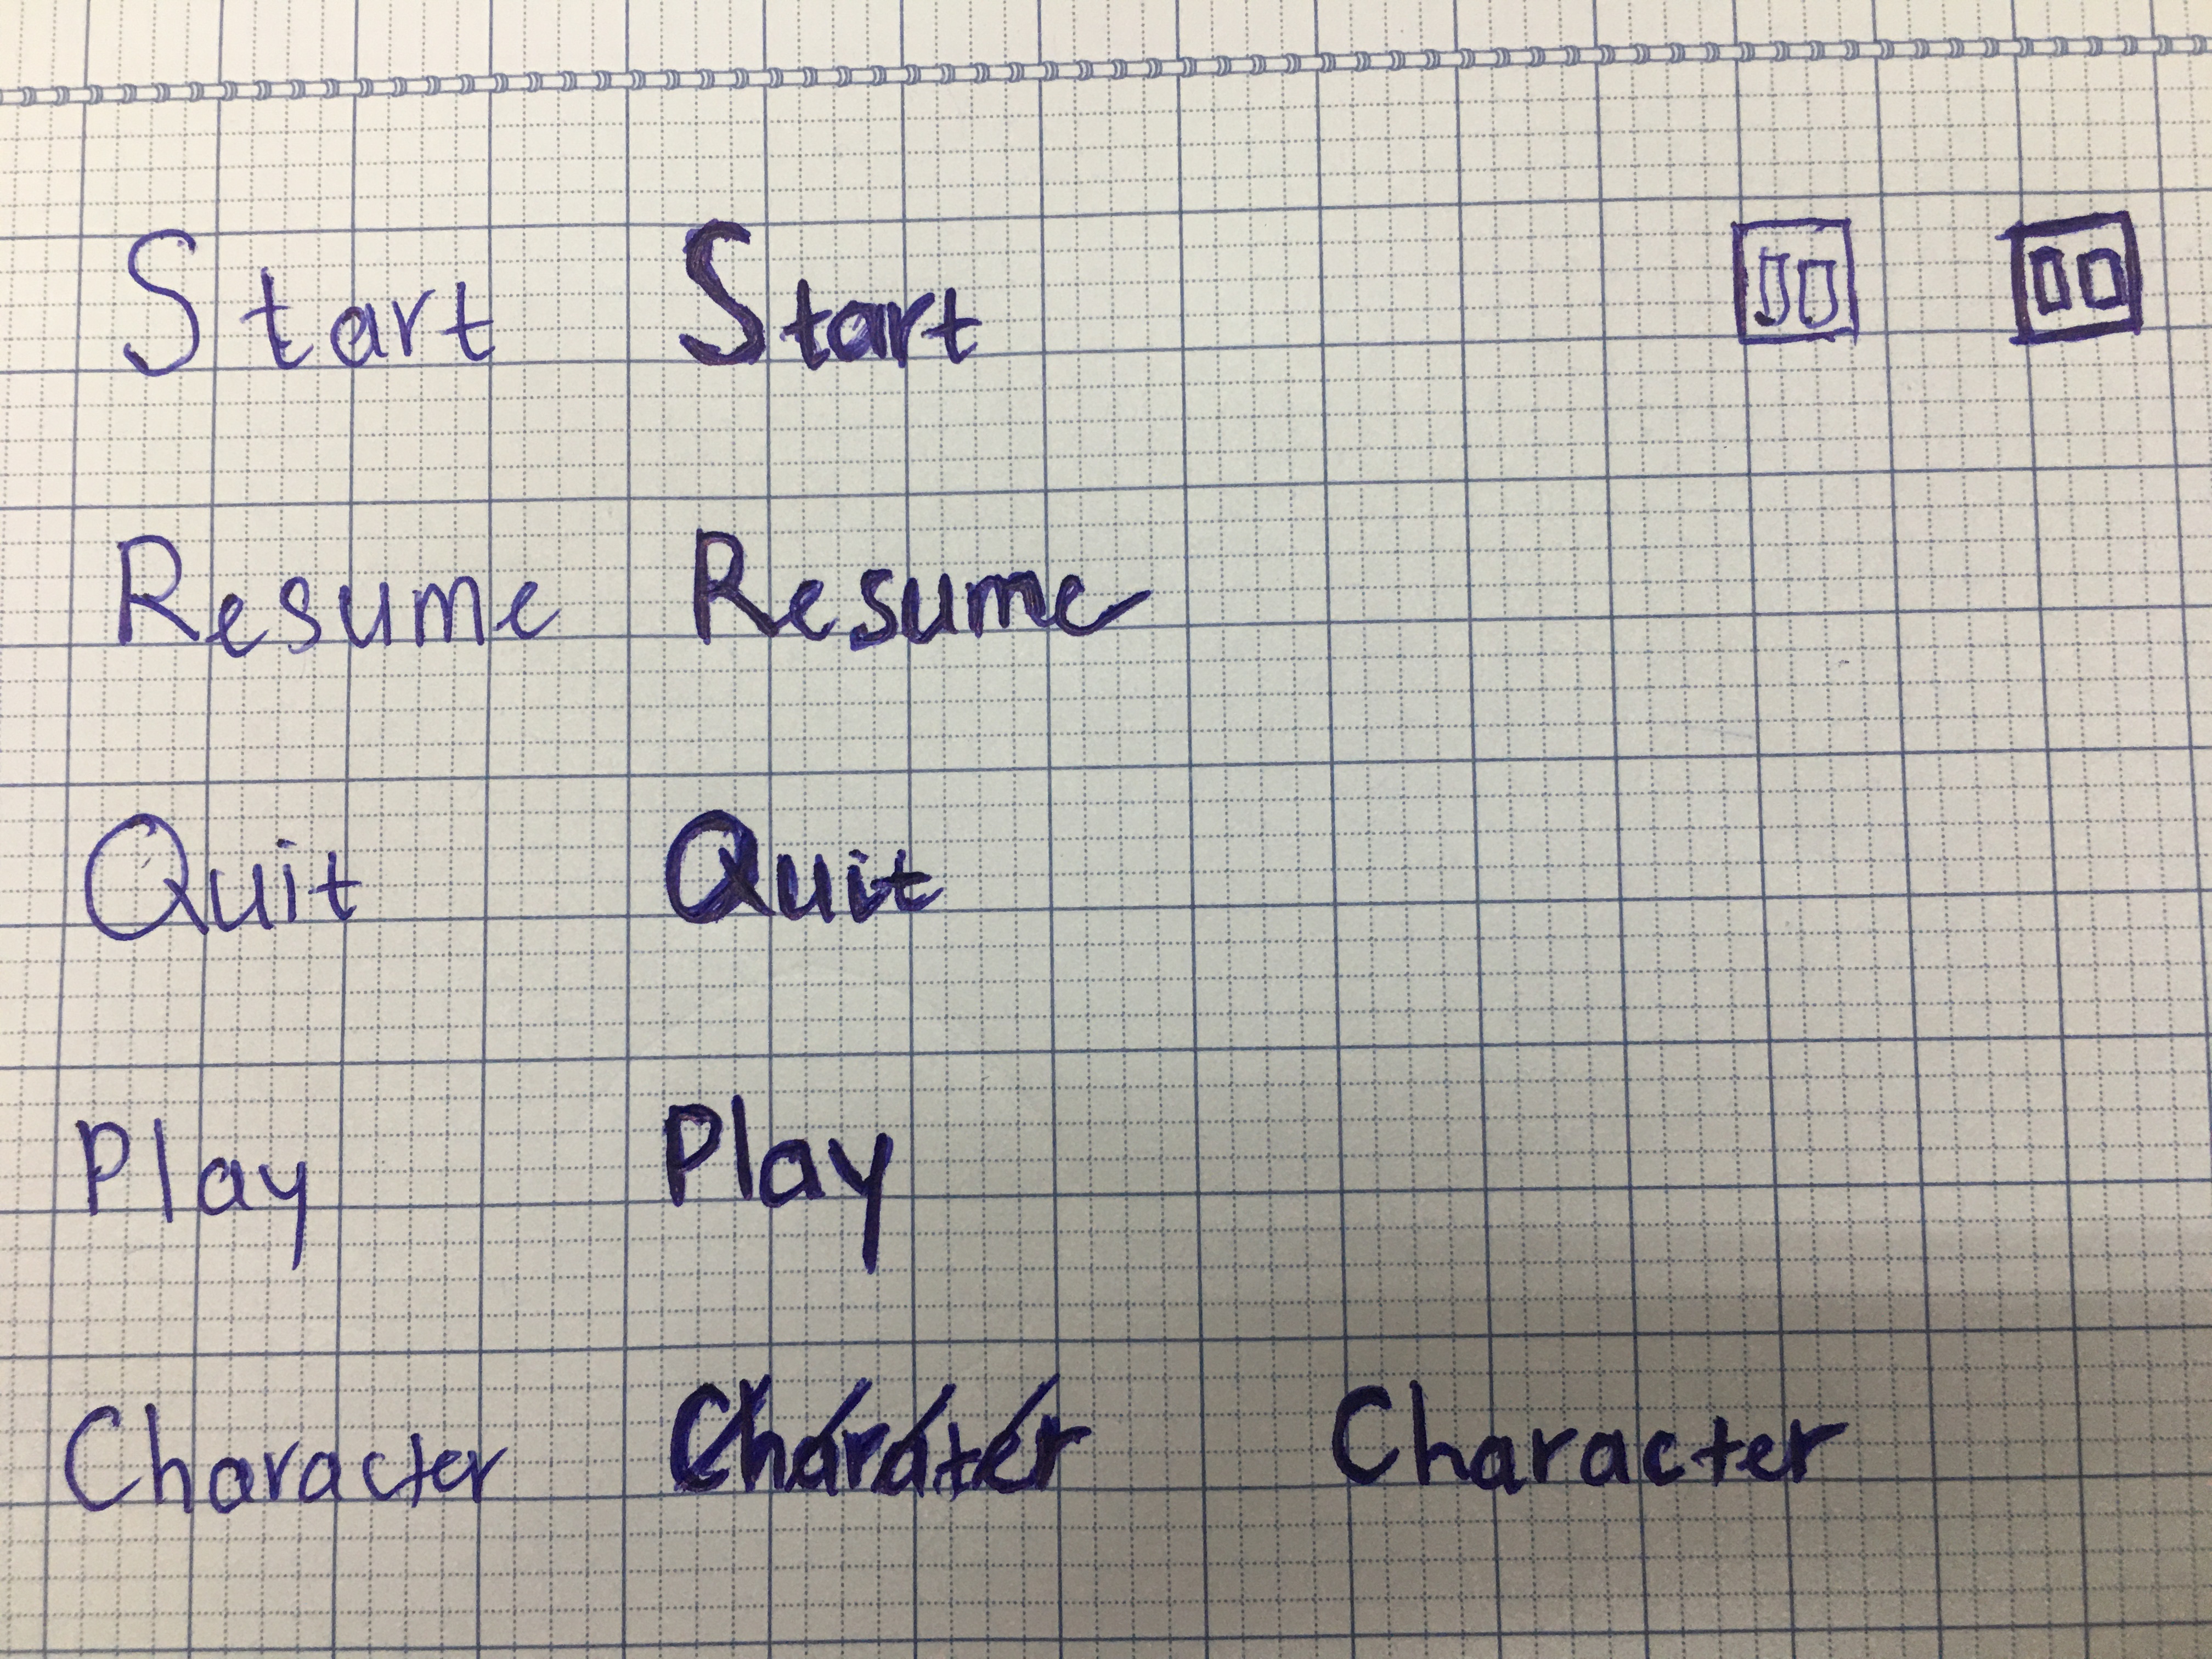 Start Start
Resume Resume
Quit Quit
Play Play
Character Charater Character